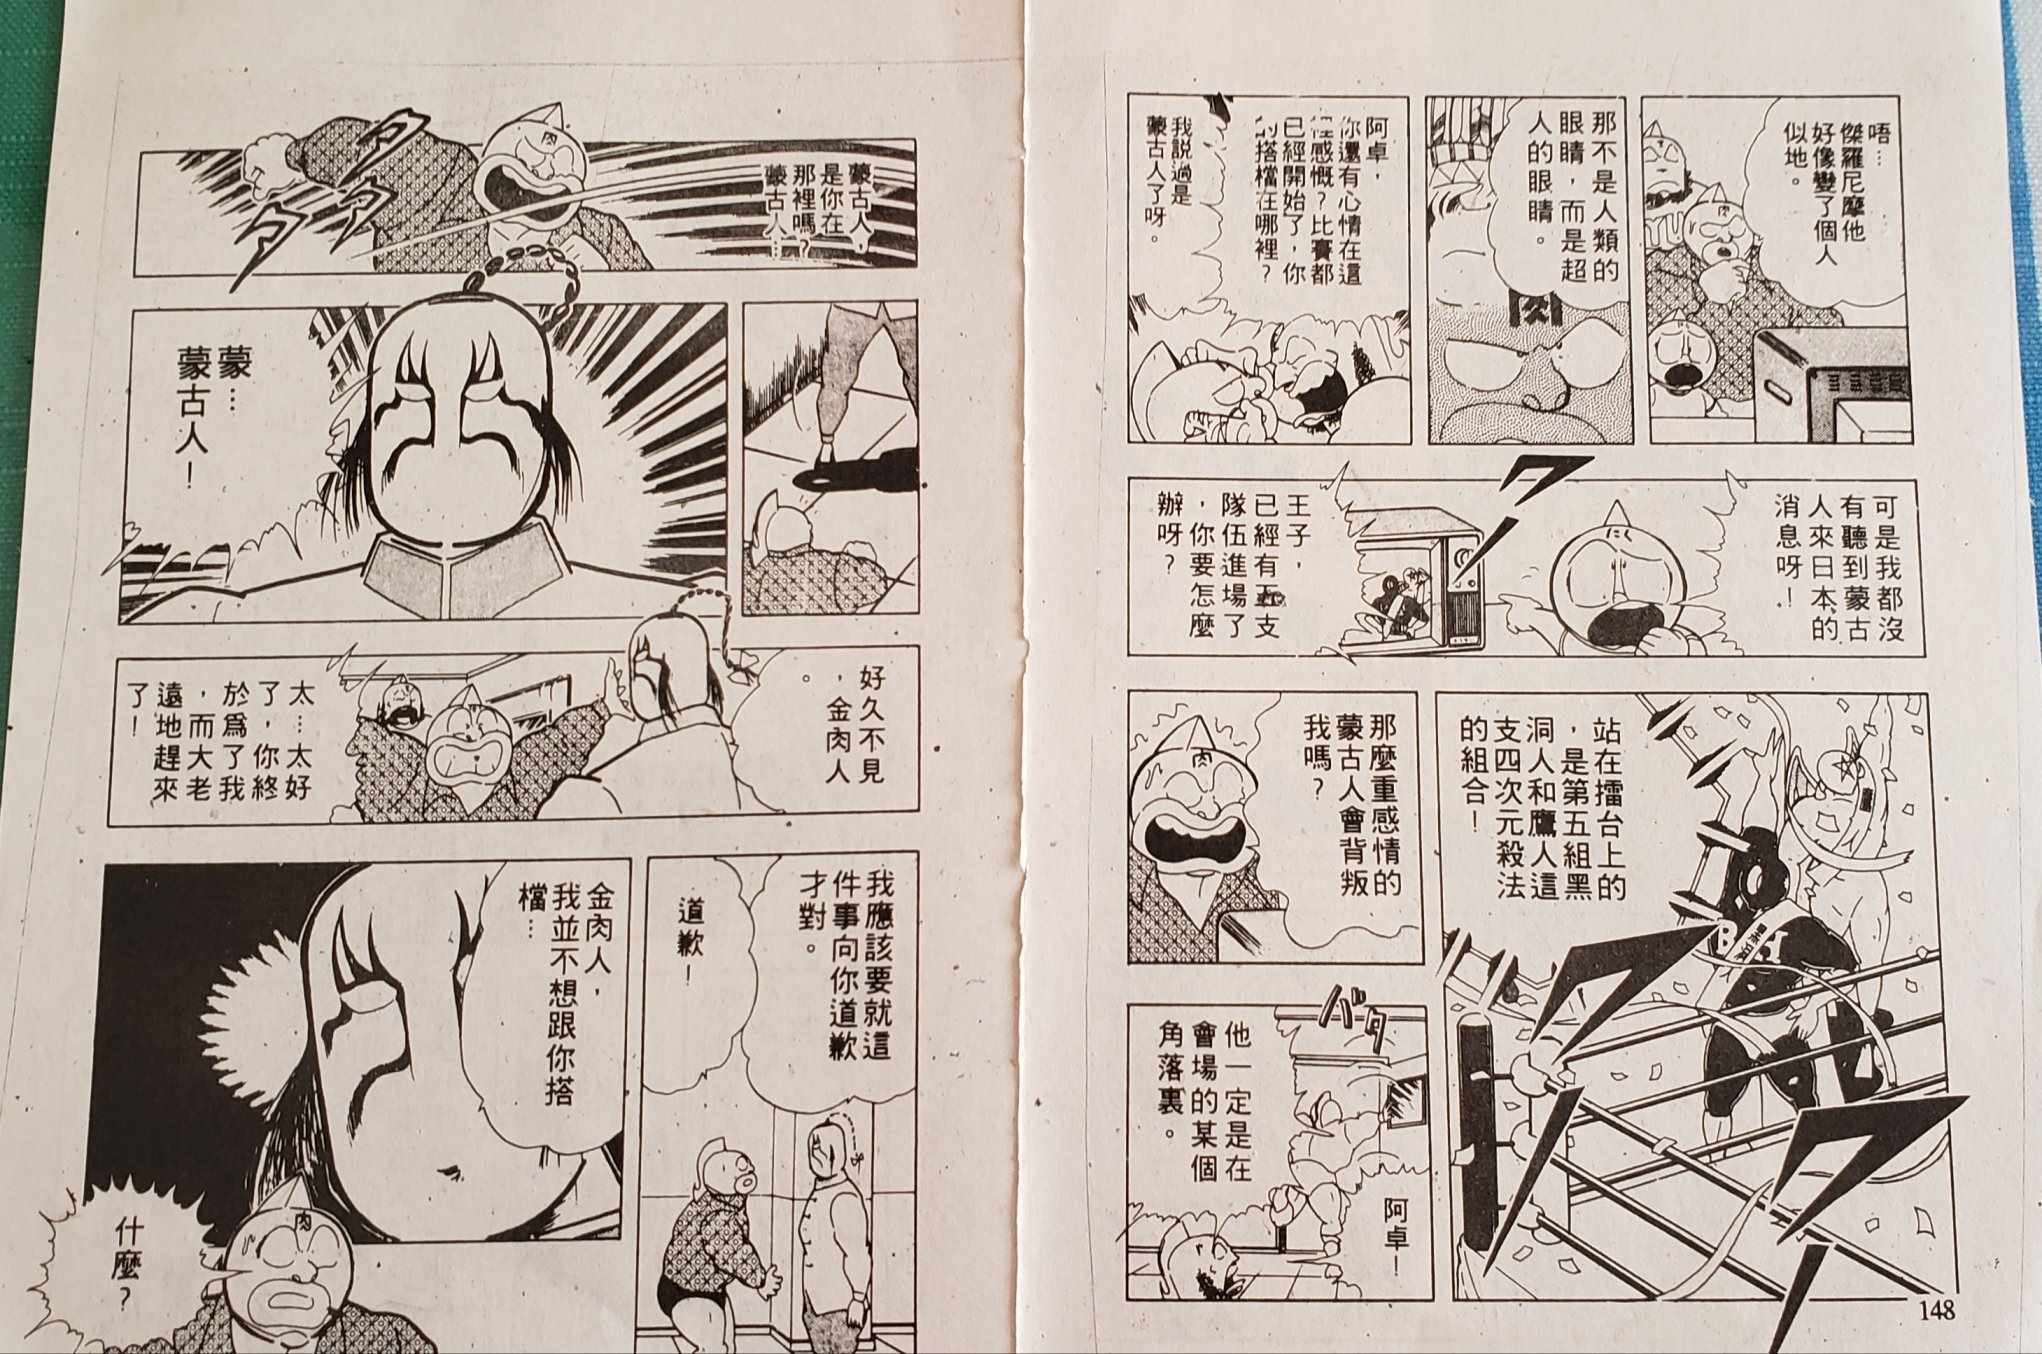 唔…
傑羅尼摩他
好像變了個人
似地。
那不是人類的
眼睛，而是超
人的眼睛。
肉
阿卓，
你還有心情在這
裡感慨？比賽都
已經開始了，你
的搭檔在哪裡？
我説過是
蒙古人了呀。
可是我都沒
有聽到蒙古
人來日本的
消息呀！
にく
ワー
王子，
已經有五支
隊伍進場了
，你要怎麼
辦呀？
站在擂台上的
，是第五組黑
洞人和鷹人這
支四次元殺法
的組合！
ワァァ
那麼重感情的
蒙古人會背叛
我嗎？
肉
バタ
他一定是在
會場的某個
角落裏。
阿卓！
148
蒙古人，
是你在
那裡嗎？
蒙古人…
肉
タタタ
蒙…
蒙古人！
好久不見
，金肉人
。
太…太好
了，你終
於爲了我
，而大老
遠地趕來
了！
我應該要就這
件事向你道歉
才對。
道歉！
金肉人，
我並不想跟你搭
檔…
什麼？
肉